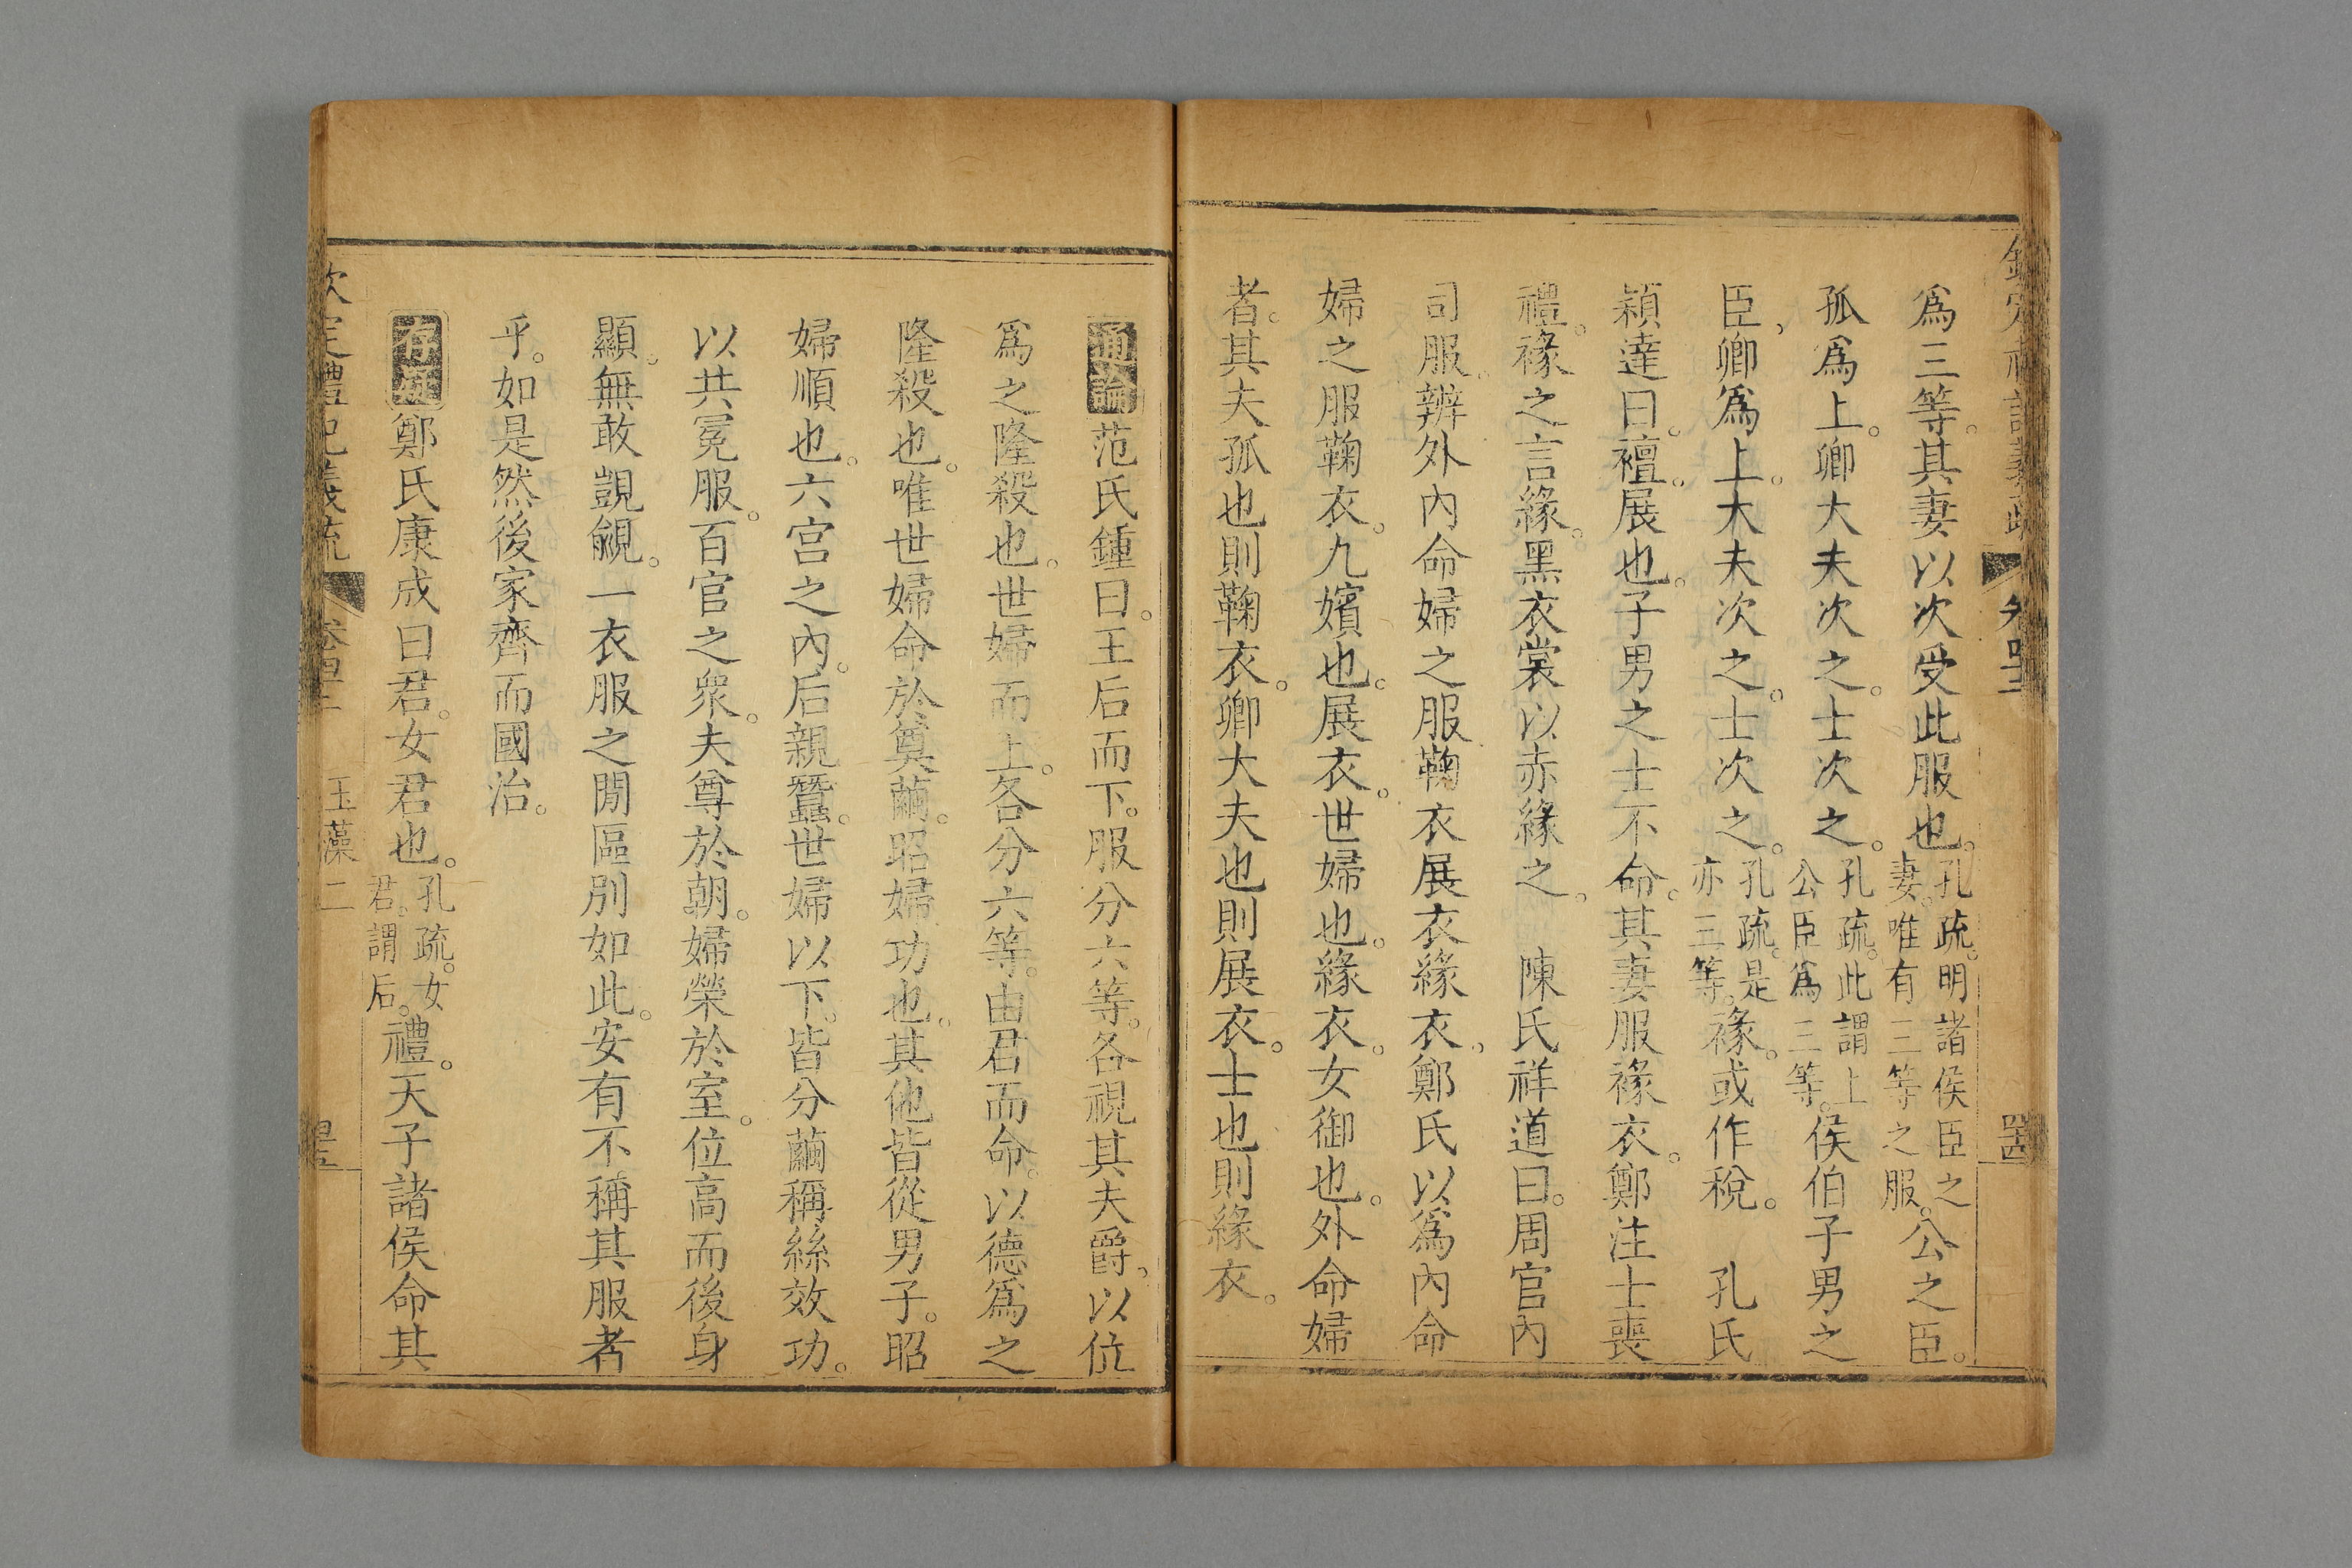 欽定禮記義疏
爲三等。其妻以次受此服也。孔疏。明諸侯臣之妻。唯有三等之服。公之臣。
孤爲上。卿大夫次之。士次之。孔疏。此謂上公臣爲三等。侯伯子男之
臣，卿爲上。大夫次之。士次之。孔疏。是亦三等。褖。或作稅。　孔氏
穎達曰。襢。展也。子男之士不命。其妻服褖衣。鄭注士喪
禮。褖之言緣。黑衣裳以赤緣之。　陳氏祥道曰。周官內
司服。辨外內命婦之服鞠衣展衣緣衣，鄭氏以爲內命
婦之服鞠衣。九嬪也。展衣。世婦也。緣衣。女御也。外命婦
者。其夫孤也則鞠衣。卿大夫也則展衣。士也則緣衣。
通論范氏鍾曰。王后而下。服分六等。各視其夫爵，以位
爲之隆殺也。世婦而上。各分六等。由君而命。以德爲之
隆殺也。唯世婦命於奠繭。昭婦功也。其他皆從男子。昭
婦順也。六宮之內。后親蠶。世婦以下。皆分繭稱絲效功。
以共冕服。百官之衆。夫尊於朝。婦榮於室。位高而後身
顯。無敢覬覦。一衣服之閒區別如此。安有不稱其服者
乎。如是然後家齊而國治。
存疑鄭氏康成曰君。女君也。孔疏。女君。謂后。禮。天子諸侯命其
欽定禮記義疏　玉藻二